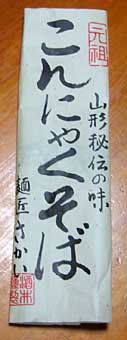 元祖
山形秘伝の味
こんにゃくそば
麺匠さかい